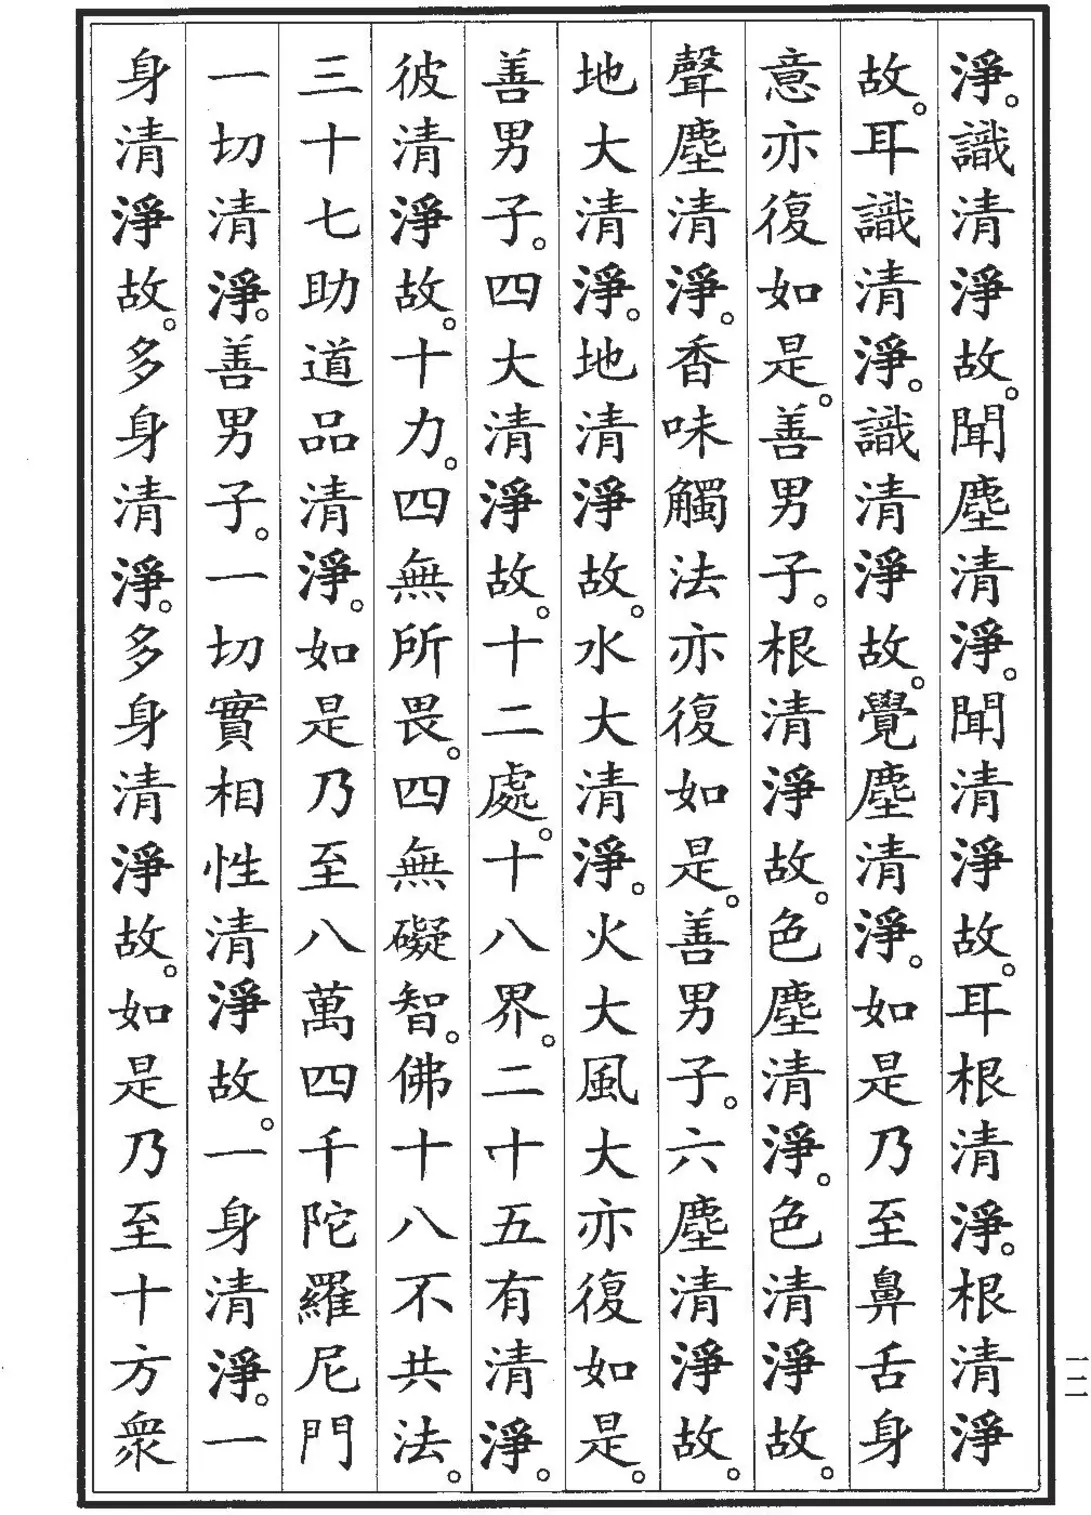 淨。識清淨故。聞塵清淨。聞清淨故。耳根清淨。根清淨
故。耳識清淨。識清淨故。覺塵清淨。如是乃至鼻舌身
意亦復如是。善男子。根清淨故。色塵清淨。色清淨故。
聲塵清淨。香味觸法亦復如是。善男子。六塵清淨故。
地大清淨。地清淨故。水大清淨。火大風大亦復如是。
善男子。四大清淨故。十二處。十八界。二十五有清淨。
彼清淨故。十力。四無所畏。四無礙智。佛十八不共法。
三十七助道品清淨。如是乃至八萬四千陀羅尼門
一切清淨。善男子。一切實相性清淨故。一身清淨。一
身清淨故。多身清淨。多身清淨故。如是乃至十方眾
一二